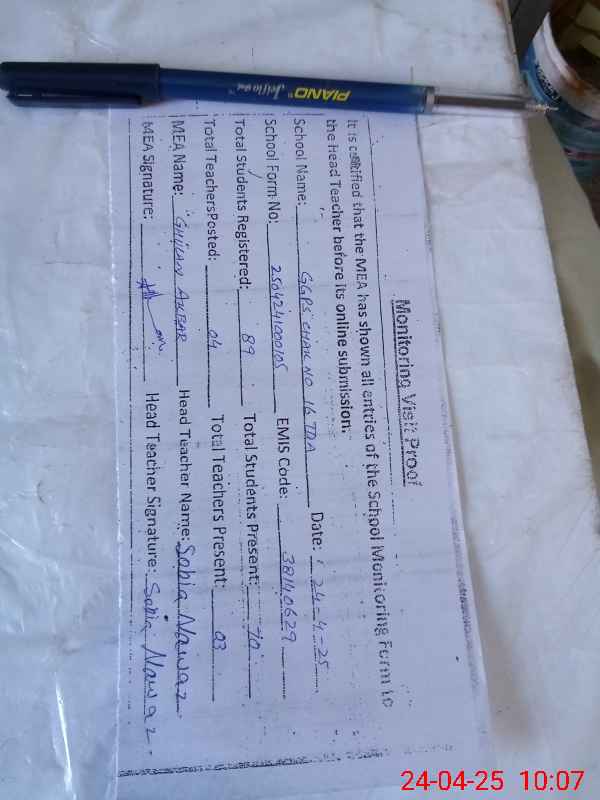 PIANO Jelflo
Monitoring Visit Proof
It is certified that the MEA has shown all entries of the School Monitoring Form to
the Head Teacher before its online submission.
School Name: GGPS CHAK NO 16 TDA Date: 24-4-25
School Form No: 2504241000105 EMIS Code: 38140629
Total Students Registered: 89 Total Students Present: 70
Total TeachersPosted: 04 Total Teachers Present: 03
MEA Name: GHULAM AKBAR Head Teacher Name: Sobia Nawaz
MEA Signature: Head Teacher Signature: Sobia Nawaz
24-04-25 10:07